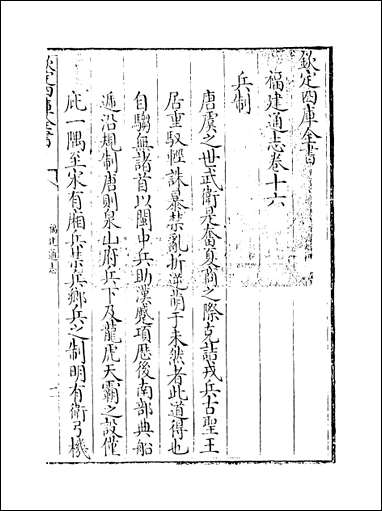 欽定四庫全書
福建通志卷十六
兵制
唐虞之世武衛是奮夏商之際克詰戎兵古聖王
居重馭輕誅暴禁亂折逆萌于未然者此道得也
自騶無諸首以閩中兵助漢蹙項歴後南部典船
遞沿規制唐則泉山府兵下及龍虎天霸之設僅
庇一隅至宋有廂兵禁兵鄉兵之制明有衛弓機
欽定四庫全書
福建通志